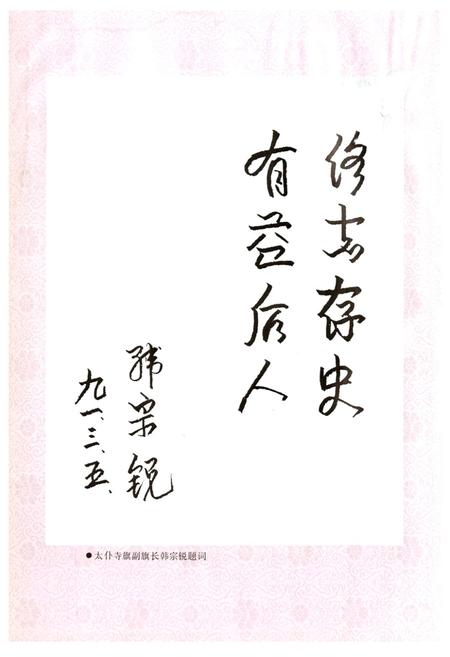 修志存史
有益后人
韩宗锐
九一、三、五、
●太仆寺旗副旗长韩宗锐题词